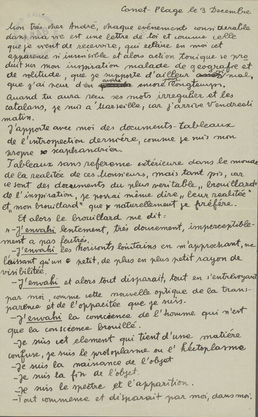 Canet-Plage le 3 Decembre
Mon très cher André, chaque evénement considerable
dans ma vie est une lettre de toi et comme celle
que je vient de recevoire, qui eclaire en moi cet
apparence si insensible et alors action tonique se pro
duit sur mon inspiration malade de geografie et
de solitude, que je supporte d'ailleur mal,
que j'ai peur d'en mourir encore longtemps.
Quand tu aura seu ces mots irregulier et les
catalans, je suis a Marseille, car j'arrive Vendredi
matin.
J'apporte avec moi des documents-tableaux
de l'introspection derniere, comme je suis mon
propre scaphandrier.
Tableaux sans reference extérieure dans le monde
de la realitée de ces Monsieurs, mais tant pis, car
ce sont des documents du plus veritable, brouillard
de l'inspiration, je pouvai même dire, leur realitée
et mon brouillard que naturellement je préfère.
Et alors le brouillard me dit:
- J'envahi lentement, très doucement, imperceptible-
ment a pas feutrés.
- J'envahi les horizonts lointains en m'approchant, ne
laissant qu'un petit, de plus en plus petit rayon de
visibilitée.
- J'envahi et alors tout disparait, tout en s'entrevoyant
par moi, comme cette nouvelle optique de la trans-
parence et de l'opacitée que je suis.
- J'envahi la conscience de l'homme qui n'est
que la conscience brouillé.
- Je suis cet element qui tient d'une matière
confuse, je suis le protoplasme ou l'hectoplasme
- Je suis la naissance de l'objet
- Je suis la fin de l'objet.
- Je suis le spectre et l'apparition.
- Tout commence et disparait par moi, dans moi.